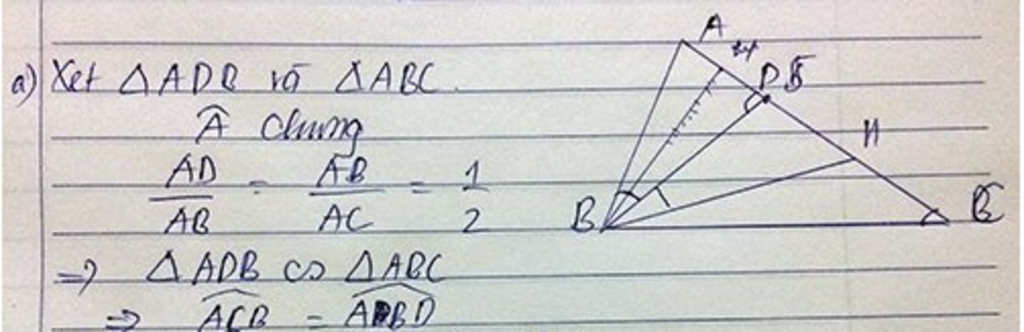 a) Xét △ADB và △ABC.
Â chung
AD/AB = AB/AC = 1/2
⇒ △ADB ∽ △ABC
⇒ ACB = ABD
A
D
H
B
C